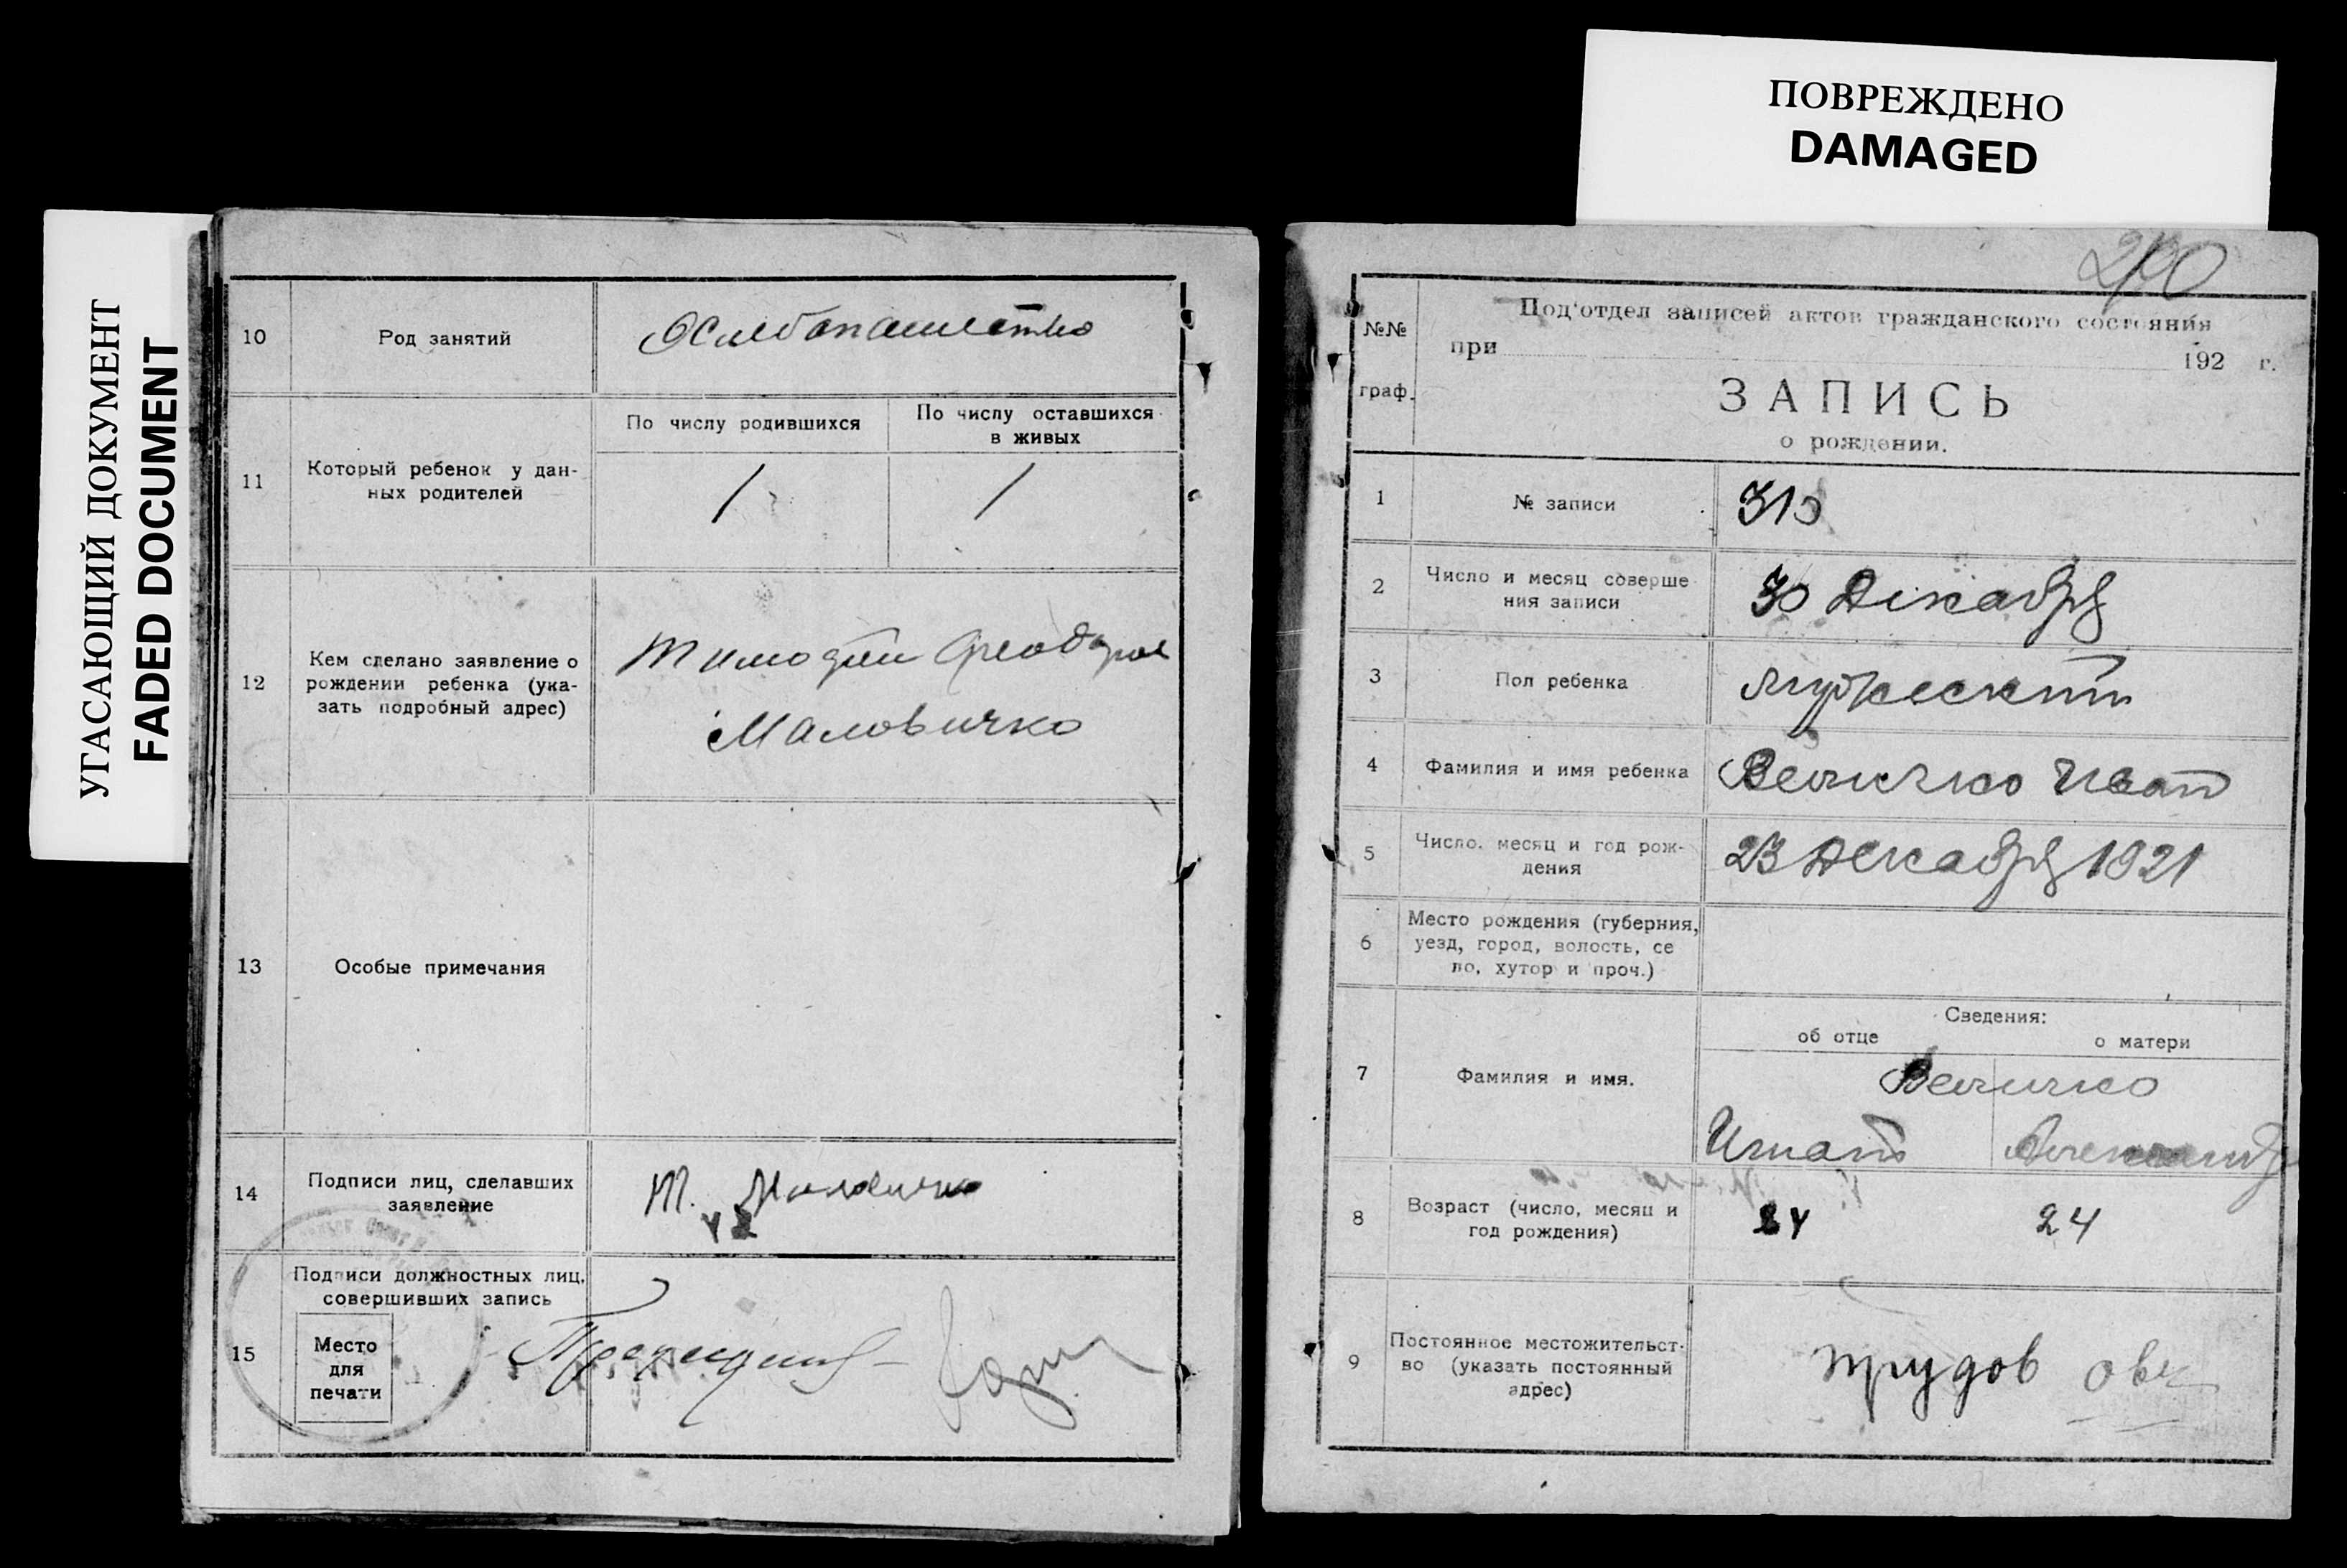 УГАСАЮЩИЙ ДОКУМЕНТ
FADED DOCUMENT
ПОВРЕЖДЕНО
DAMAGED
10
Род занятий
11
Который ребенок у дан-
ных родителей
По числу родившихся
По числу оставшихся
в живых
1
1
12
Кем сделано заявление о
рождении ребенка (ука-
зать подробный адрес)
Тимофей
Маловичко
13
Особые примечания
14
Подписи лиц, сделавших
заявление
Т. Маловичко
15
Подписи должностных лиц,
совершивших запись
Место
для
печати
№№
граф.
Под'отдел записей актов гражданского состояния
при
192 г.
ЗАПИСЬ
о рождении.
1
№ записи
2
Число и месяц соверше
ния записи
30 Декабря
3
Пол ребенка
мужеский
4
Фамилия и имя ребенка
Величко Иван
5
Число, месяц и год рож-
дения
23 Декабря 1921
6
Место рождения (губерния,
уезд, город, волость, се
ло, хутор и проч.)
Сведения:
об отце
о матери
7
Фамилия и имя.
Величко
Игнат
8
Возраст (число, месяц и
год рождения)
24
24
9
Постоянное местожительст-
во (указать постоянный
адрес)
трудов